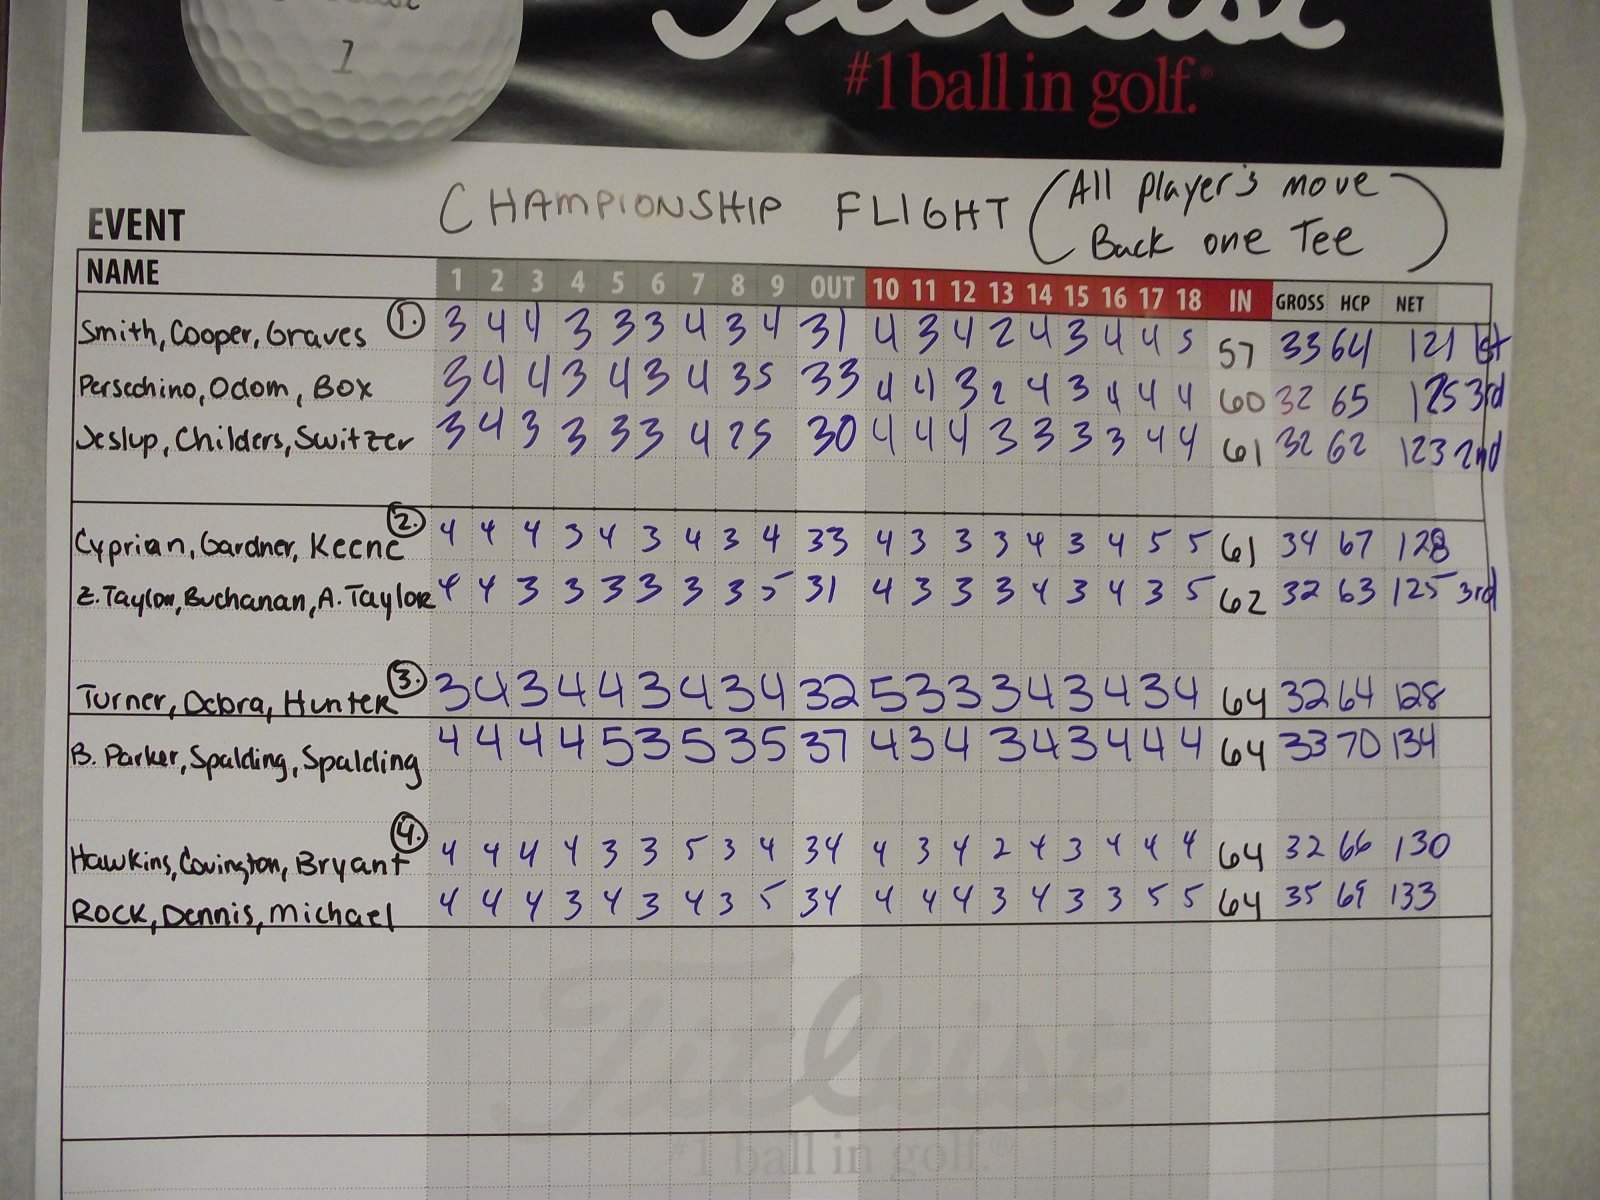 1
Titleist
#1 ball in golf.®
CHAMPIONSHIP FLIGHT (All Player's move
Back one Tee)
EVENT
NAME 1 2 3 4 5 6 7 8 9 OUT 10 11 12 13 14 15 16 17 18 IN GROSS HCP NET
Smith, Cooper, Graves 1. 3 4 4 3 3 3 4 3 4 31 4 3 4 2 4 3 4 4 5 57 33 64 121 1st
Persechino, Odom, Box 3 4 4 3 4 3 4 3 5 33 4 4 3 2 4 3 4 4 4 60 32 65 125 3rd
Jeslup, Childers, Switzer 3 4 3 3 3 3 4 2 5 30 4 4 4 3 3 3 3 4 4 61 32 62 123 2nd
Cyprian, Gardner, Keene 2. 4 4 4 3 4 3 4 3 4 33 4 3 3 3 4 3 4 5 5 61 34 67 128
Z. Taylor, Buchanan, A. Taylor 4 4 3 3 3 3 3 3 5 31 4 3 3 3 4 3 4 3 5 62 32 63 125 3rd
Turner, Debra, Hunter 3. 3 4 3 4 4 3 4 3 4 32 5 3 3 3 4 3 4 3 4 64 32 64 128
B. Parker, Spalding, Spalding 4 4 4 4 5 3 5 3 5 37 4 3 4 3 4 3 4 4 4 64 33 70 134
Hawkins, Covington, Bryant 4. 4 4 4 4 3 3 5 3 4 34 4 3 4 2 4 3 4 4 4 64 32 66 130
Rock, Dennis, Michael 4 4 4 3 4 3 4 3 5 34 4 4 4 3 4 3 3 5 5 64 35 69 133
Titleist
#1 ball in golf.®